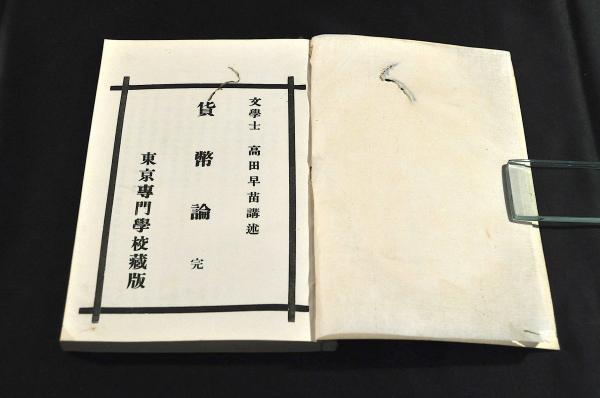 文學士 高田早苗講述
貨幣論 完
東京專門學校藏版